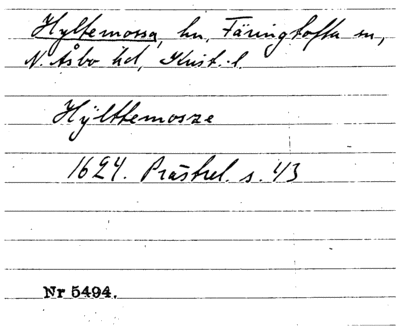 Hyltemossa, hn, Färingtofta sn,
N. Åsbo hd, Krist. l.
Hÿlttemosze
1624. Prästrel. s. 43
Nr 5494.